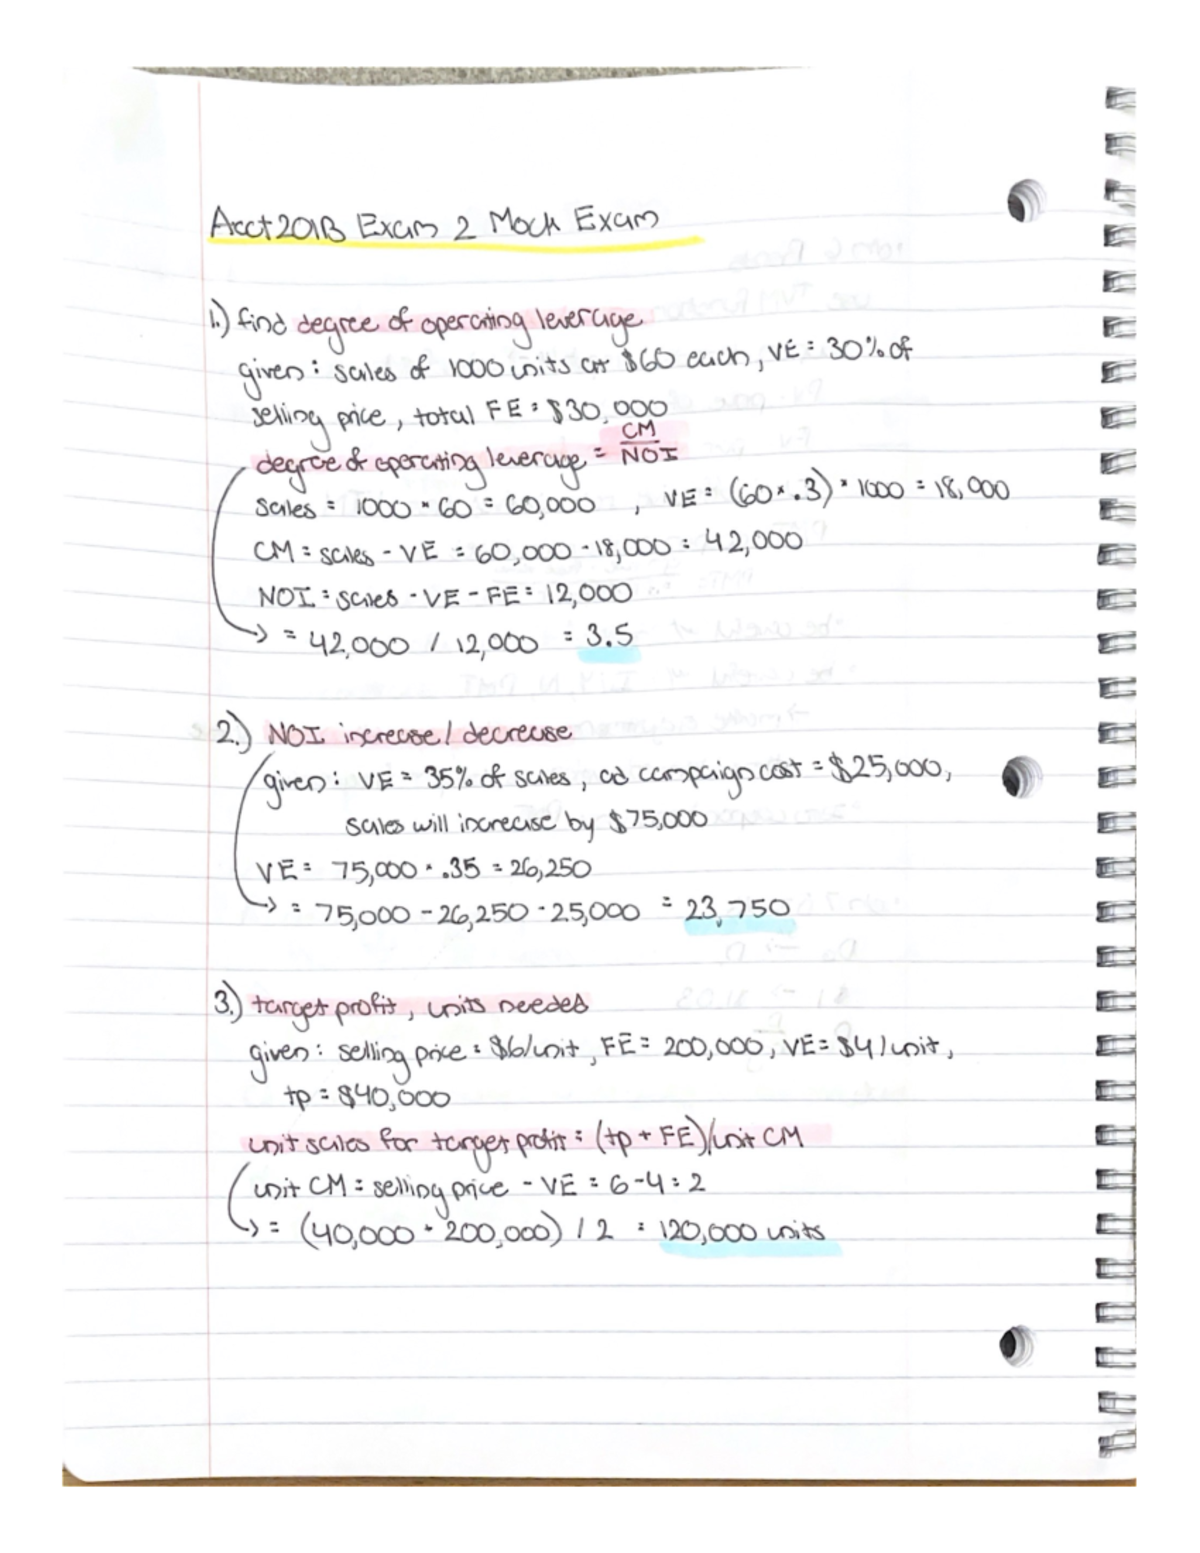 Acct201B Exam 2 Mock Exam
1.) find degree of operating leverage
given: sales of 1000 units at $60 each, VE = 30% of
selling price, total FE = $30,000
degree of operating leverage = CM / NOI
sales = 1000 * 60 = 60,000 , VE = (60 * .3) * 1000 = 18,000
CM = sales - VE = 60,000 - 18,000 = 42,000
NOI = sales - VE - FE = 12,000
→ = 42,000 / 12,000 = 3.5
2.) NOI increase / decrease
given: VE = 35% of sales, ad campaign cost = $25,000,
sales will increase by $75,000
VE = 75,000 * .35 = 26,250
→ = 75,000 - 26,250 - 25,000 = 23,750
3.) target profit, units needed
given: selling price = $6/unit, FE = 200,000, VE = $4/unit,
tp = $40,000
unit sales for target profit = (tp + FE)/unit CM
unit CM = selling price - VE = 6-4 = 2
→ = (40,000 + 200,000) / 2 = 120,000 units